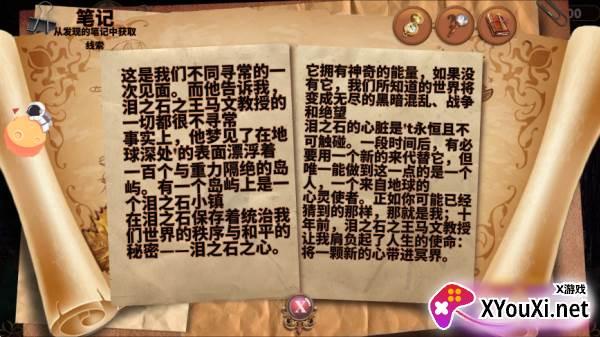 笔记
从发现的笔记中获取
线索
00
这是我们不同寻常的一
次见面。而他告诉我,
泪之石之王马文教授的
一切都很不寻常
事实上,他梦见了在地
球深处'的表面漂浮着
一百个与重力隔绝的岛
屿。有一个岛屿上是一
个泪之石小镇
在泪之石保存着统治我
们世界的秩序与和平的
秘密——泪之石之心。
它拥有神奇的能量,如果没
有它,我们所知道的世界将
变成无尽的黑暗混乱、战争
和绝望
泪之石的心脏是't永恒且不
可触碰。一段时间后,有必
要用一个新的来代替它,但
唯一能做到这一点的是一个
人,一个来自地球的
心灵使者。正如你可能已经
猜到的那样,那就是我;十
年前,泪之石之王马文教授
让我肩负起了人生的使命:
将一颗新的心带进冥界。
X
X游戏
XYouXi.net